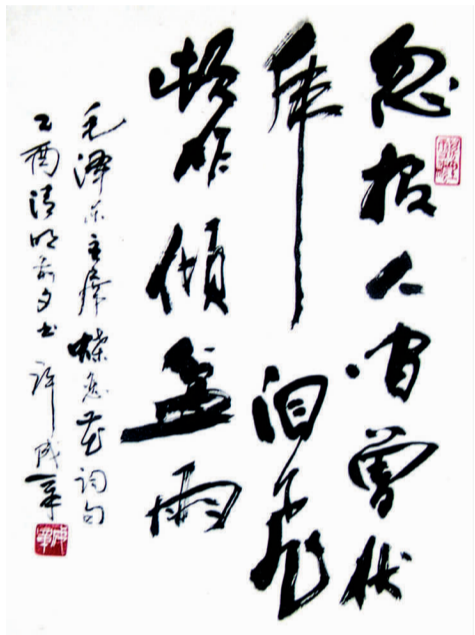 忽报人间曾伏
虎泪飞
顿作倾盆雨
毛泽东主席蝶恋花词句
乙酉清明前夕书 许成